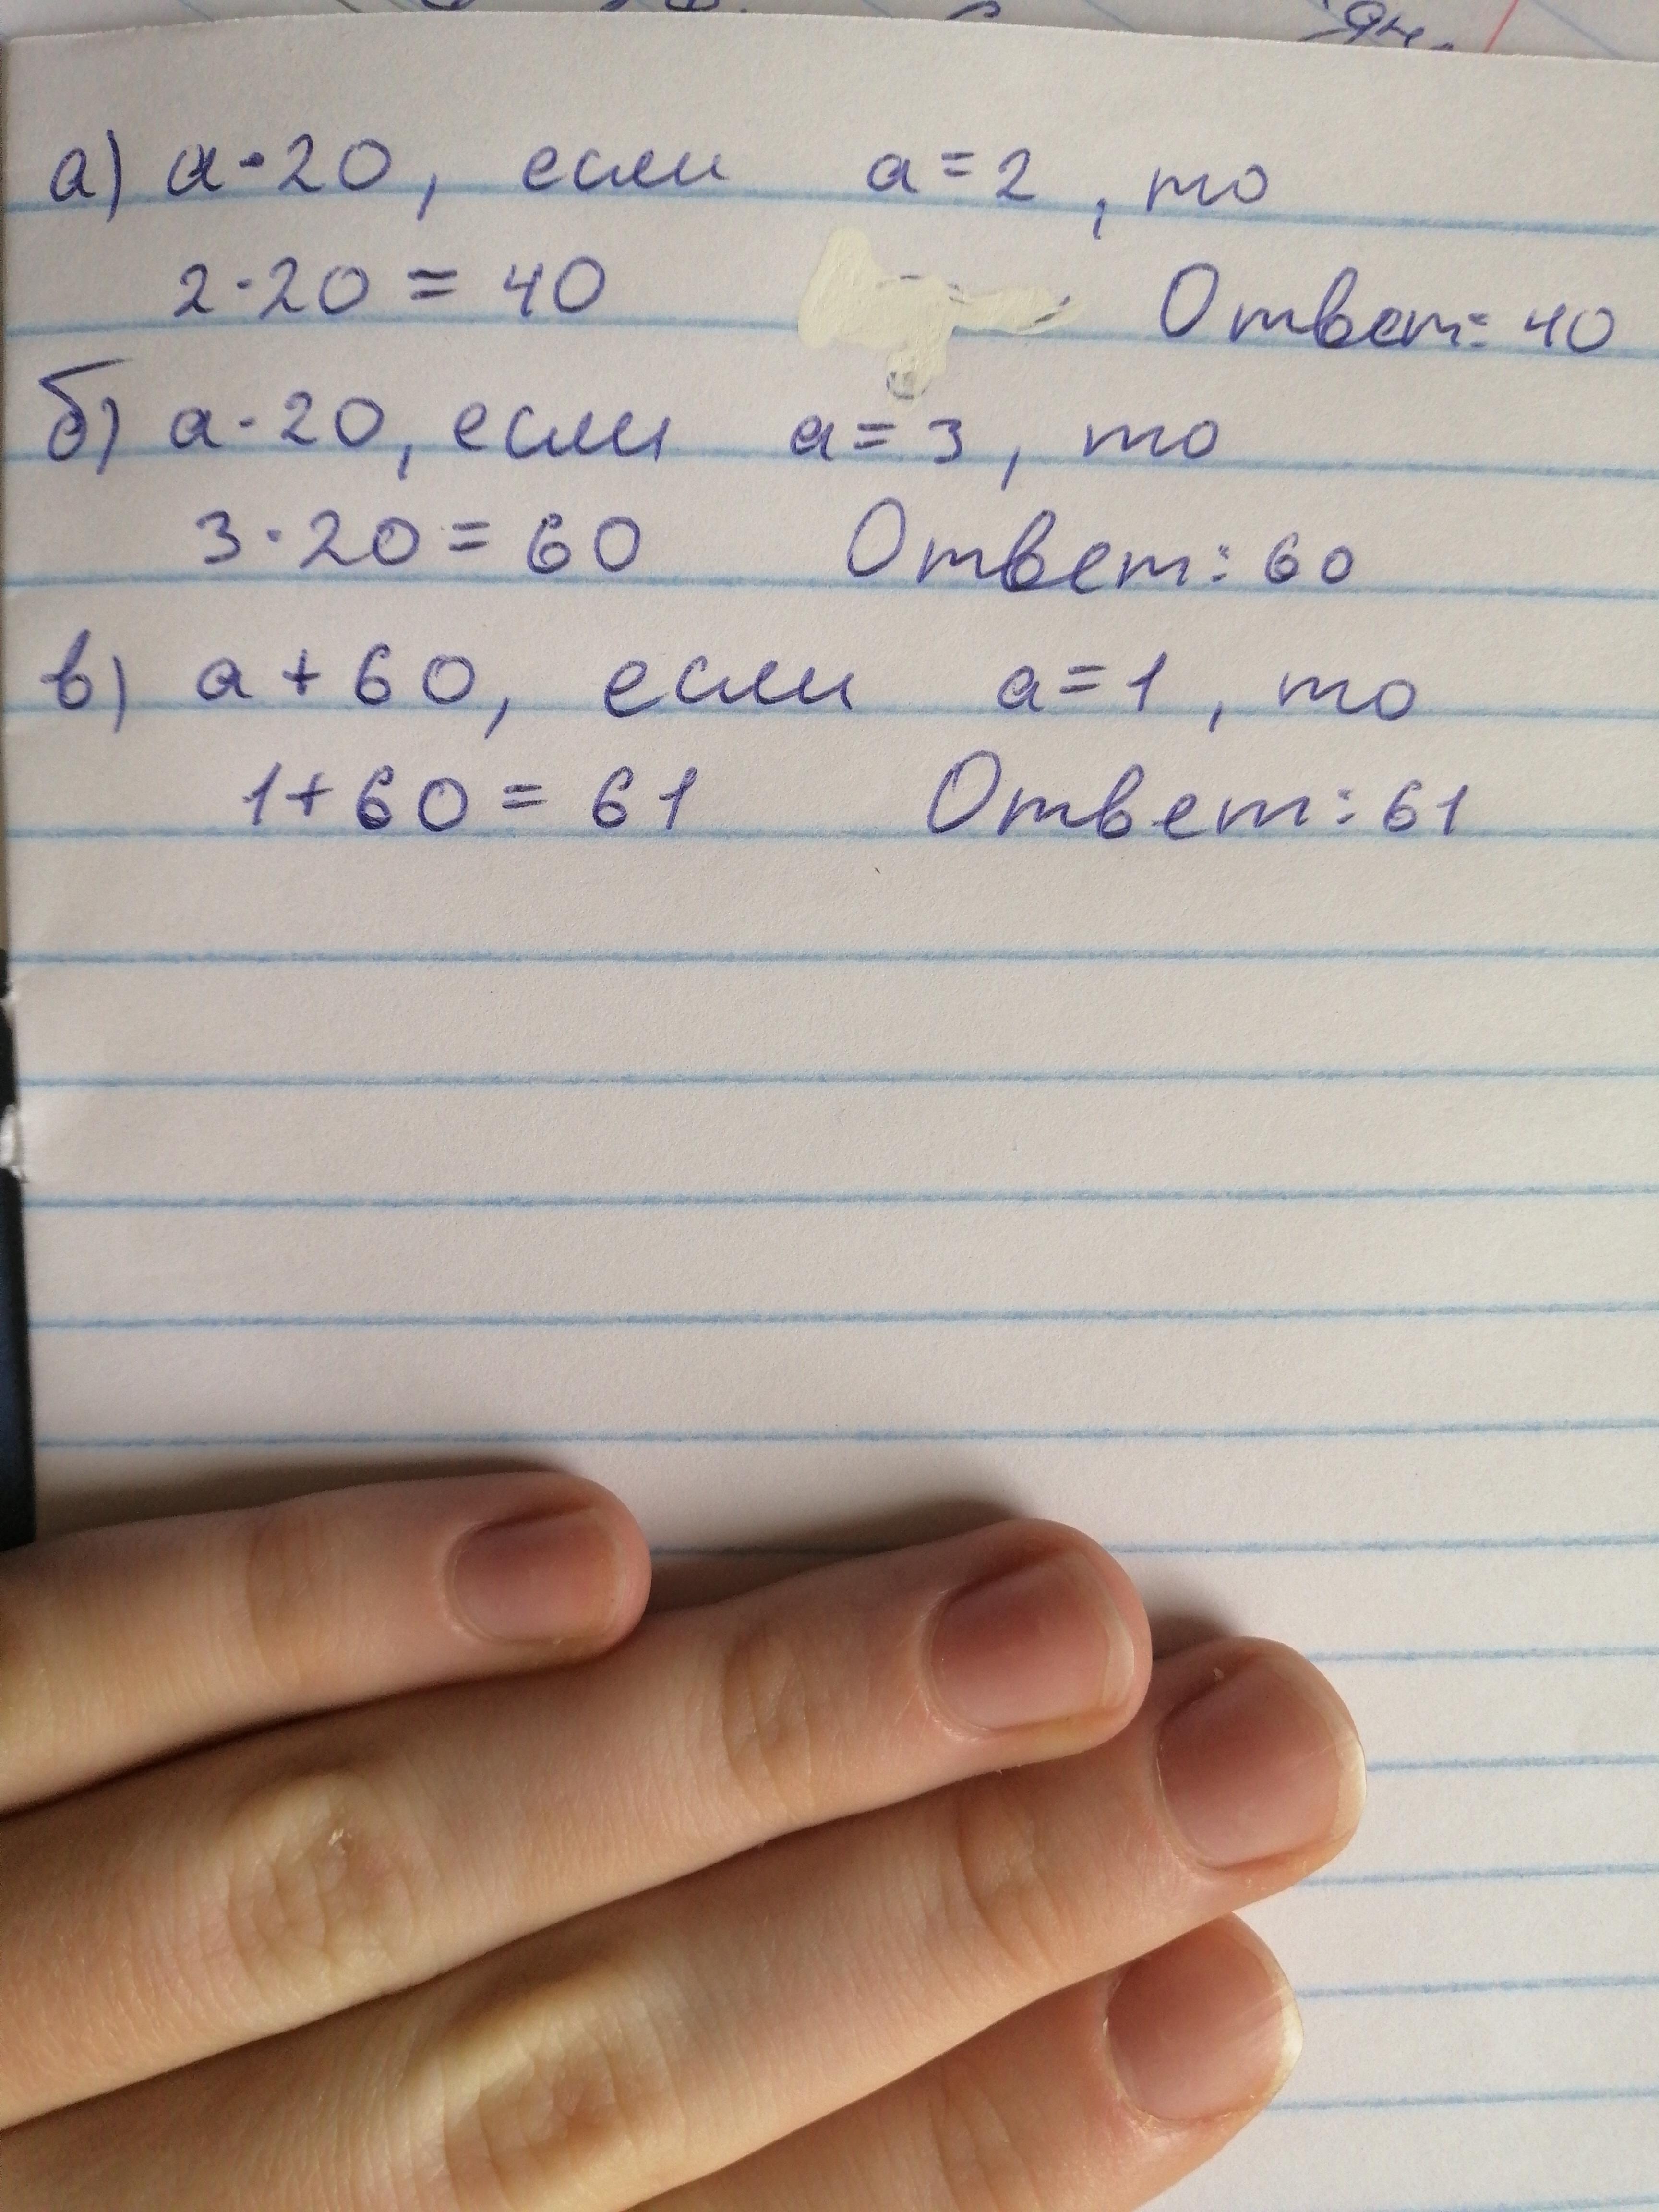 а) а·20, если а=2, то
2·20=40 Ответ: 40
б) а·20, если а=3, то
3·20=60 Ответ: 60
в) а+60, если а=1, то
1+60=61 Ответ: 61